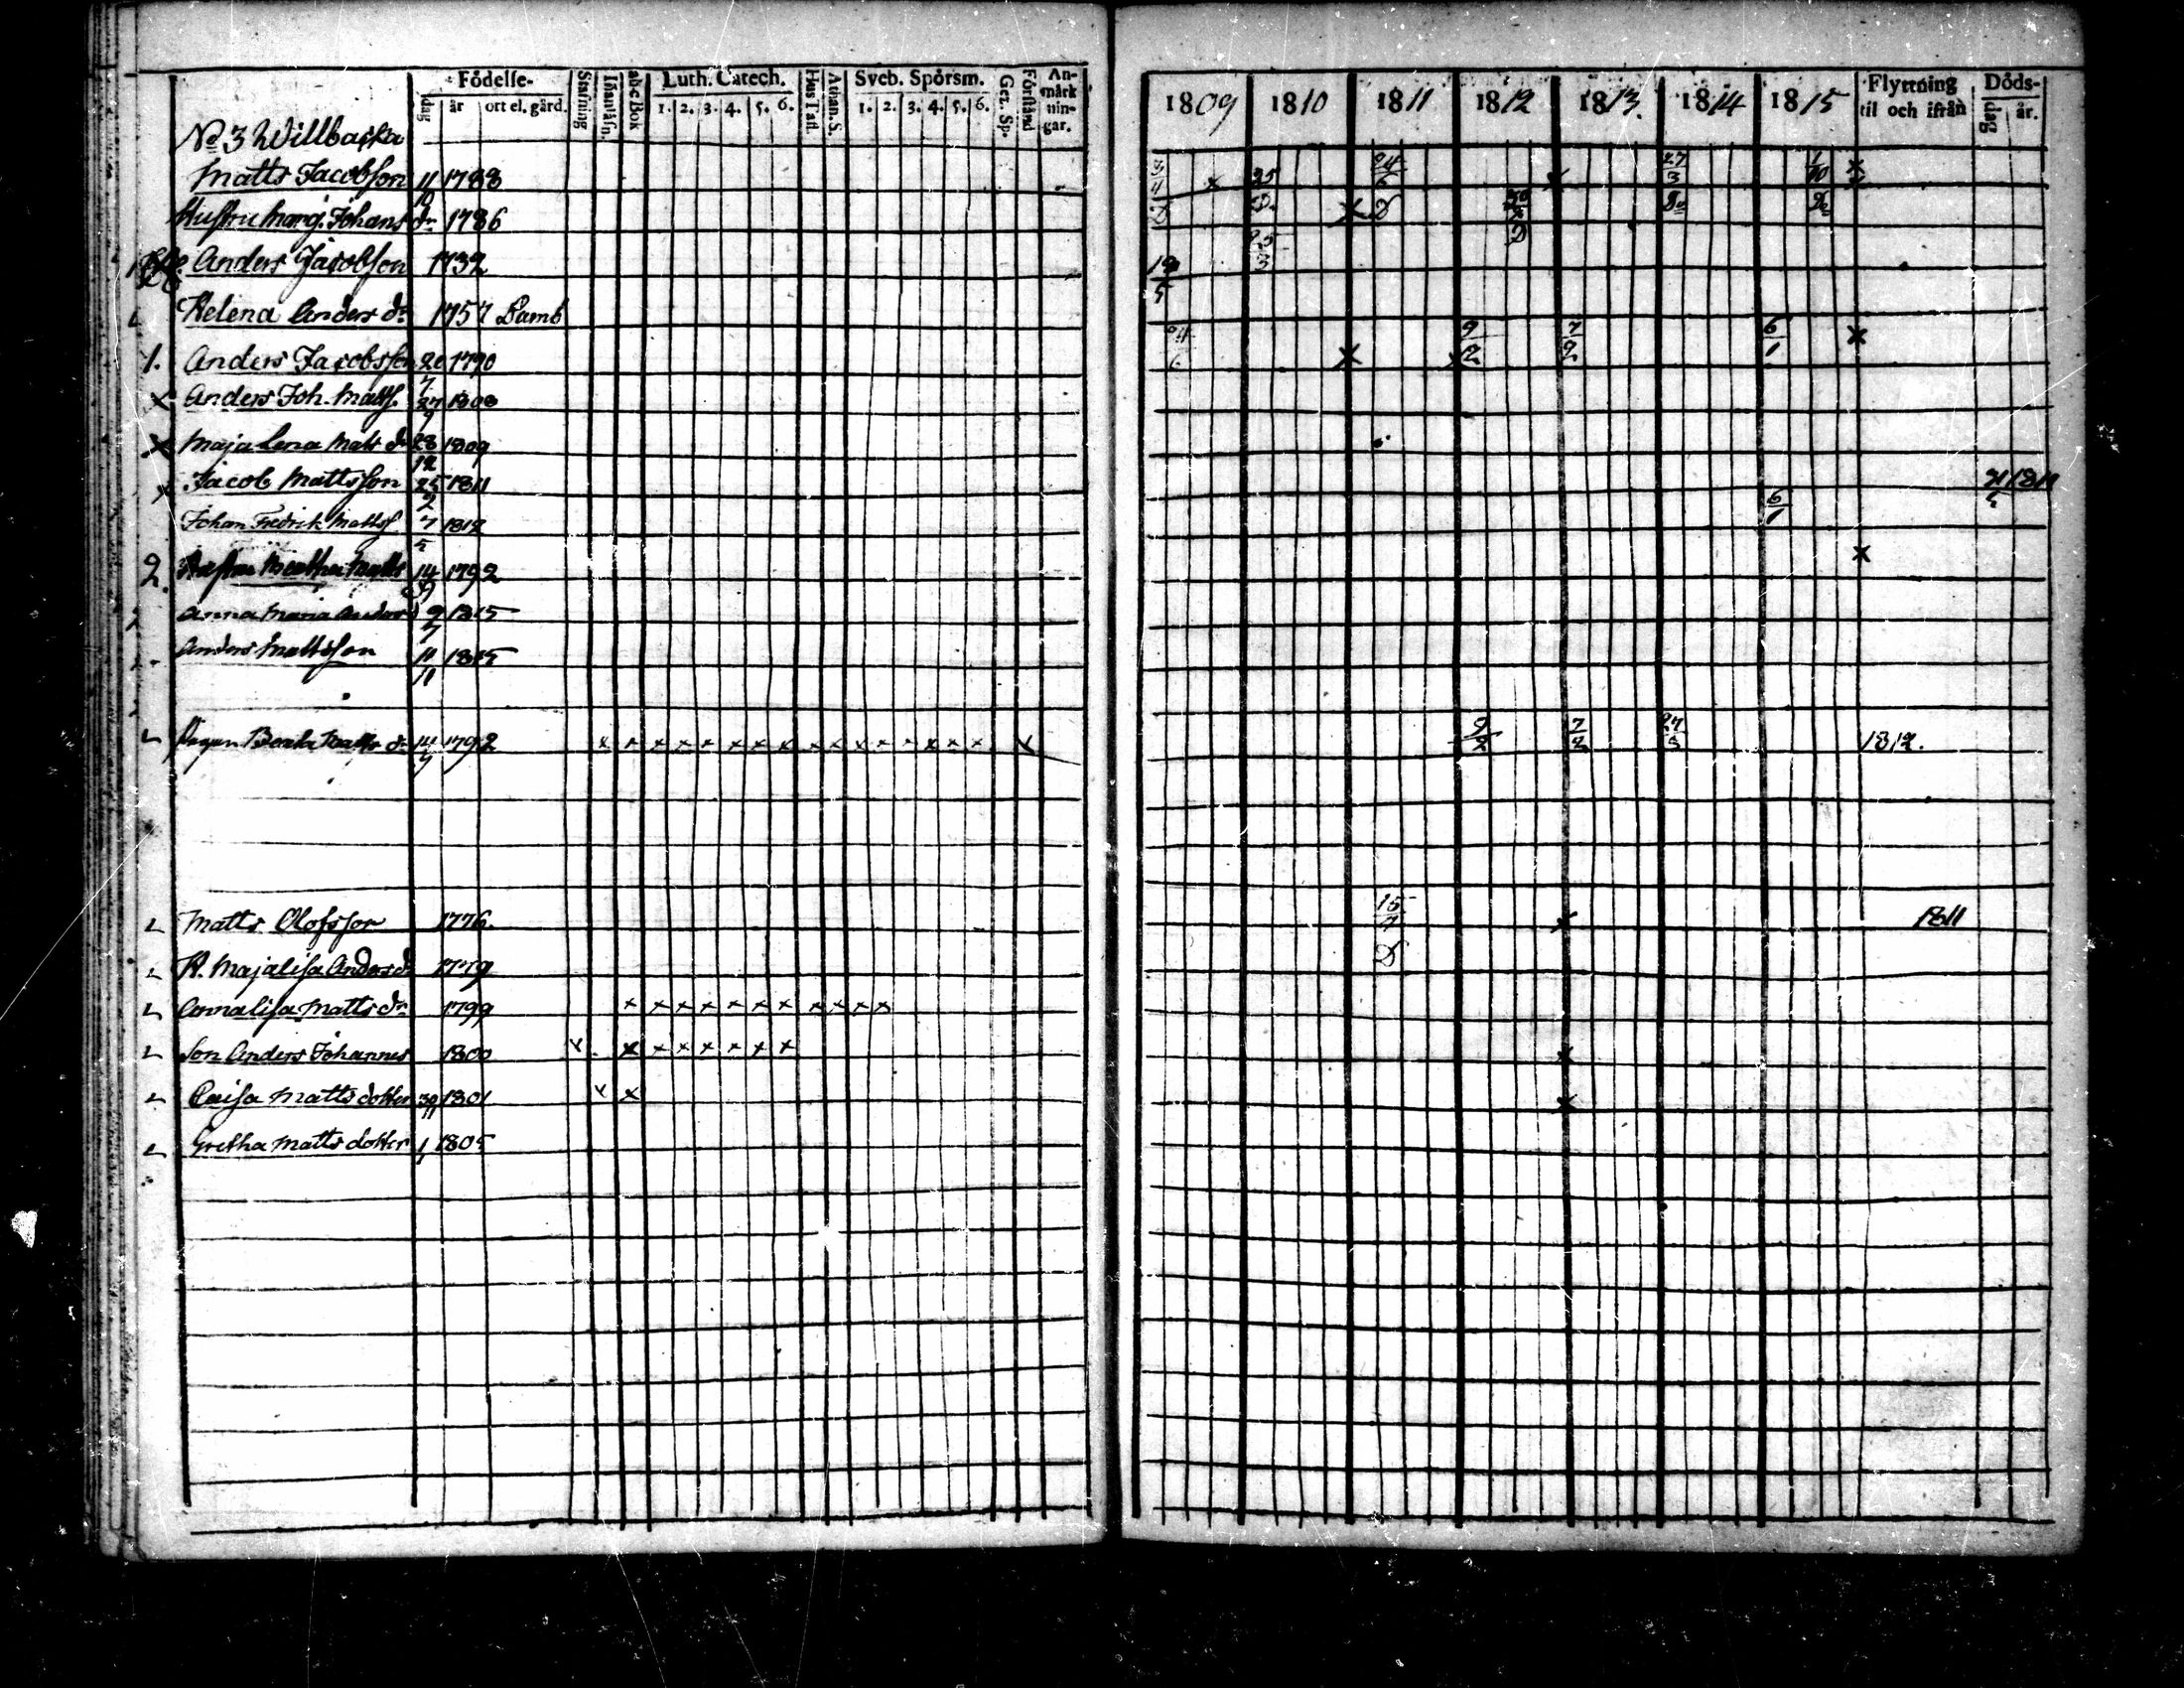 Födelse- Stafning Inanläsn. abc Bok Luth. Catech. Hus Tafl. Athan. S. Sveb. Spörsm. Gez. Sp. Förstånd An-märk nin-gar.
dag år ort el. gård. 1. 2. 3. 4. 5. 6. 1. 2. 3. 4. 5. 6.
1809 1810 1811 1812 1813. 1814 1815 Flyttning til och ifrån Döds- dag år.
No 3 Willbacka
Matts Jacobsson 11/10 1788 3/4 x 25 24/6 x 27/3 1/10 x
Hustru Marg. Johans dr 1786 D D. x D D Do Do
Anders Jacobsson 1732 19/5 25/3
Helena Anders dr 1757 Lamb
1. Anders Jacobsson 20/7 1790 24/6 x x 9/2 7/2 6/1 x
x Anders Joh. Matts. 27/9 1808
x Maja Lena Matts dr 28/12 1809
x Jacob Mattsson 25/2 1811
Johan Fredrik Mattss 7/5 1812 6/1
2. Hustru Beatha Matts 14/9 1792 x
Anna Maria Anders 9/7 1815
Anders Mattsson 11/11 1815
Pigan Beata Matts dr 14 1792 x x x x x x x x x x x x x x x x x 9/2 7/2 27/3 1812.
Matts Olofsson 1776. 15/7 x 1811
H. Majalisa Anders dr 1779 D
Annalisa Matts dr 1799 x x x x x x x x x x x
Son Anders Johannes 1800 x x x x x x x x x
Caisa Matts dotter 30/11 1801 x x x
Gretha Matts dotter 1 1805